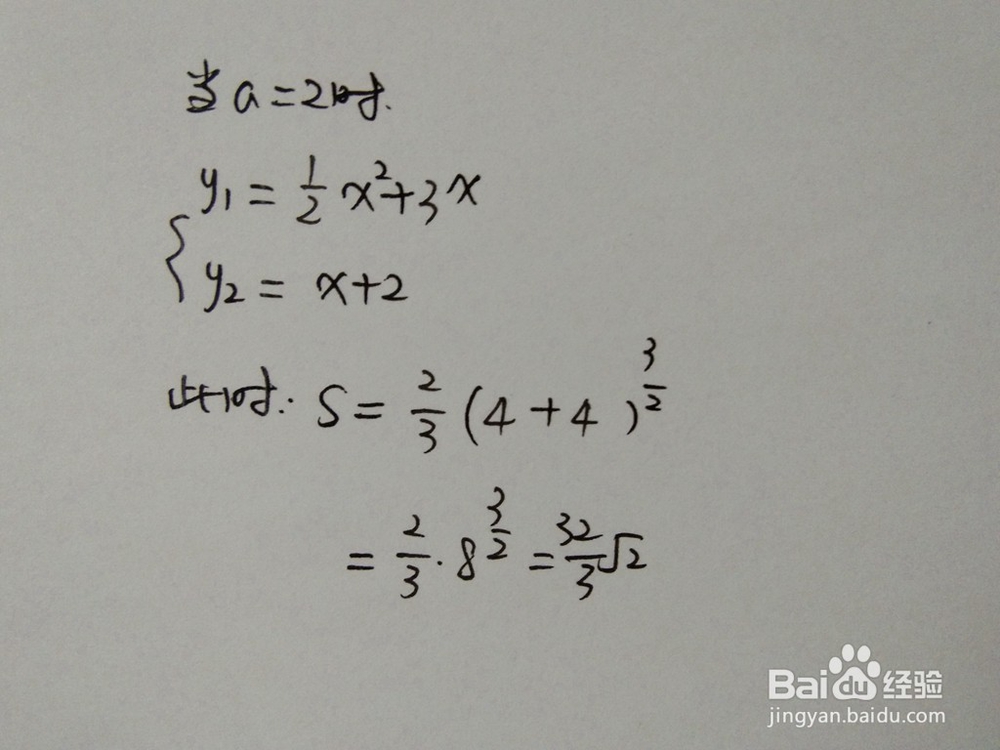 当a=2时.
y₁=½x²+3x
y₂=x+2
此时: S=⅔(4+4)^(3/2)
=⅔·8^(3/2)=32/3√2
Baidu经验
jingyan.baidu.com